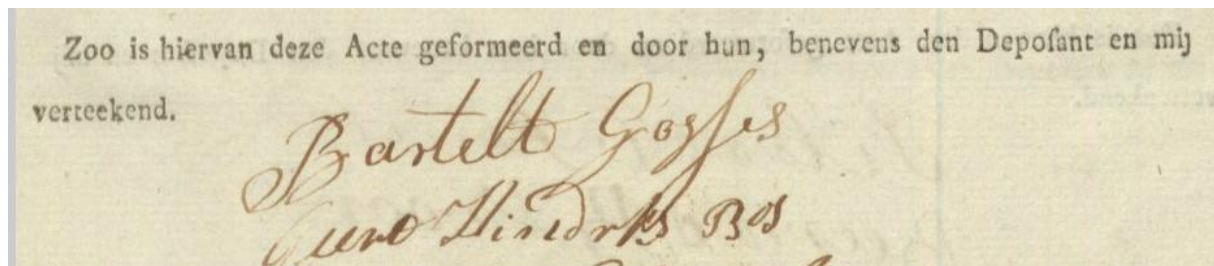 Zoo is hiervan deze Acte geformeerd en door hun, benevens den Deposant en mij
verteekend.
Bartelt Gosses
Hindrks Bos